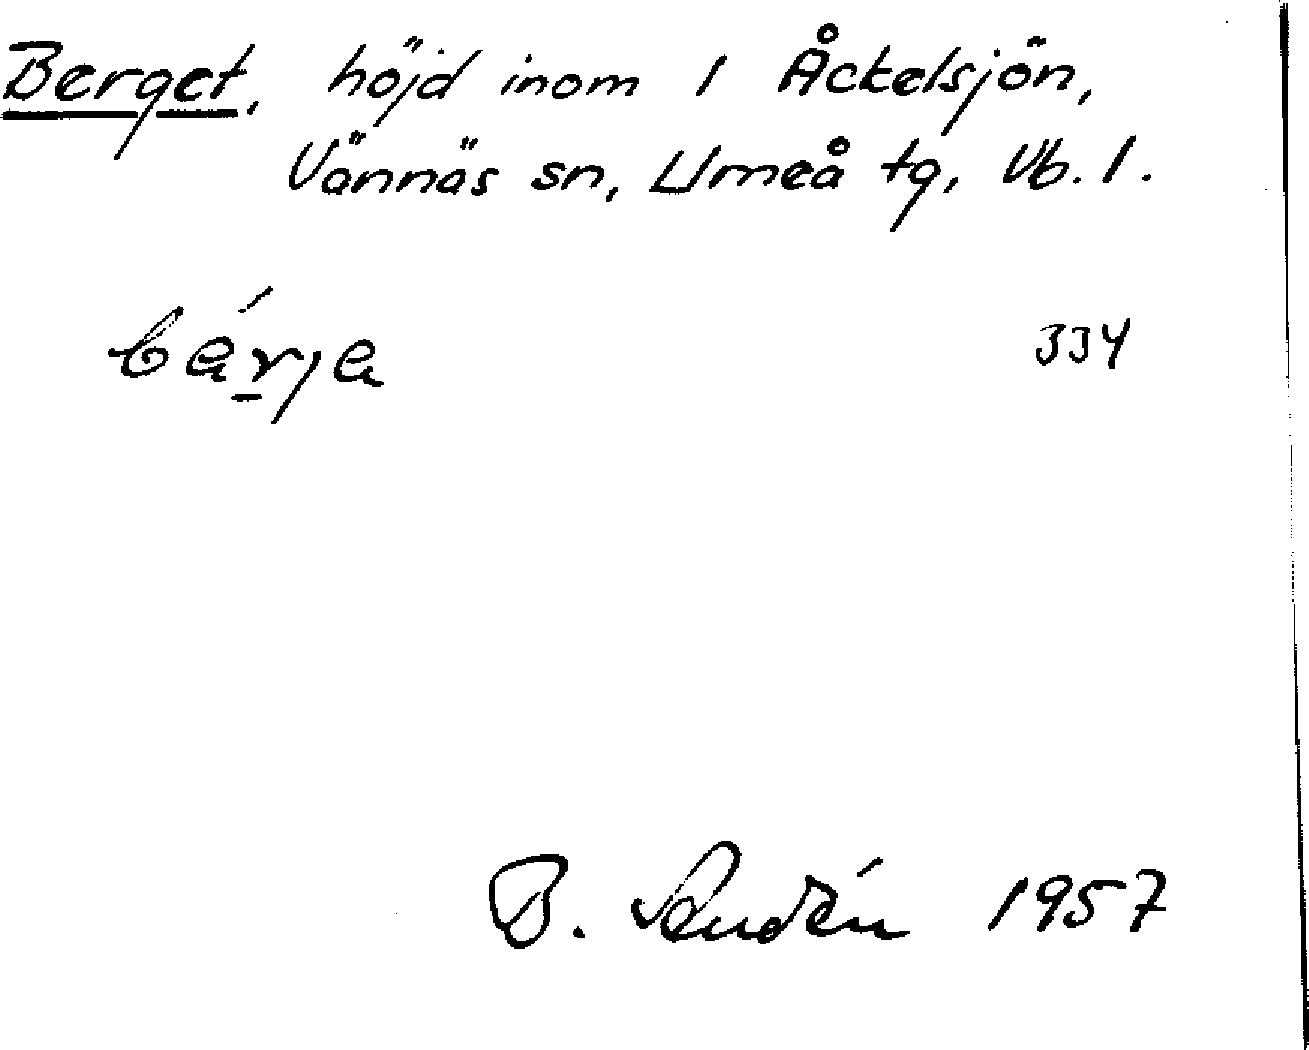 Berget, höjd inom 1 Åckelsjön,
Vännäs sn, Umeå tg, Vb. l.
334
B. 1957